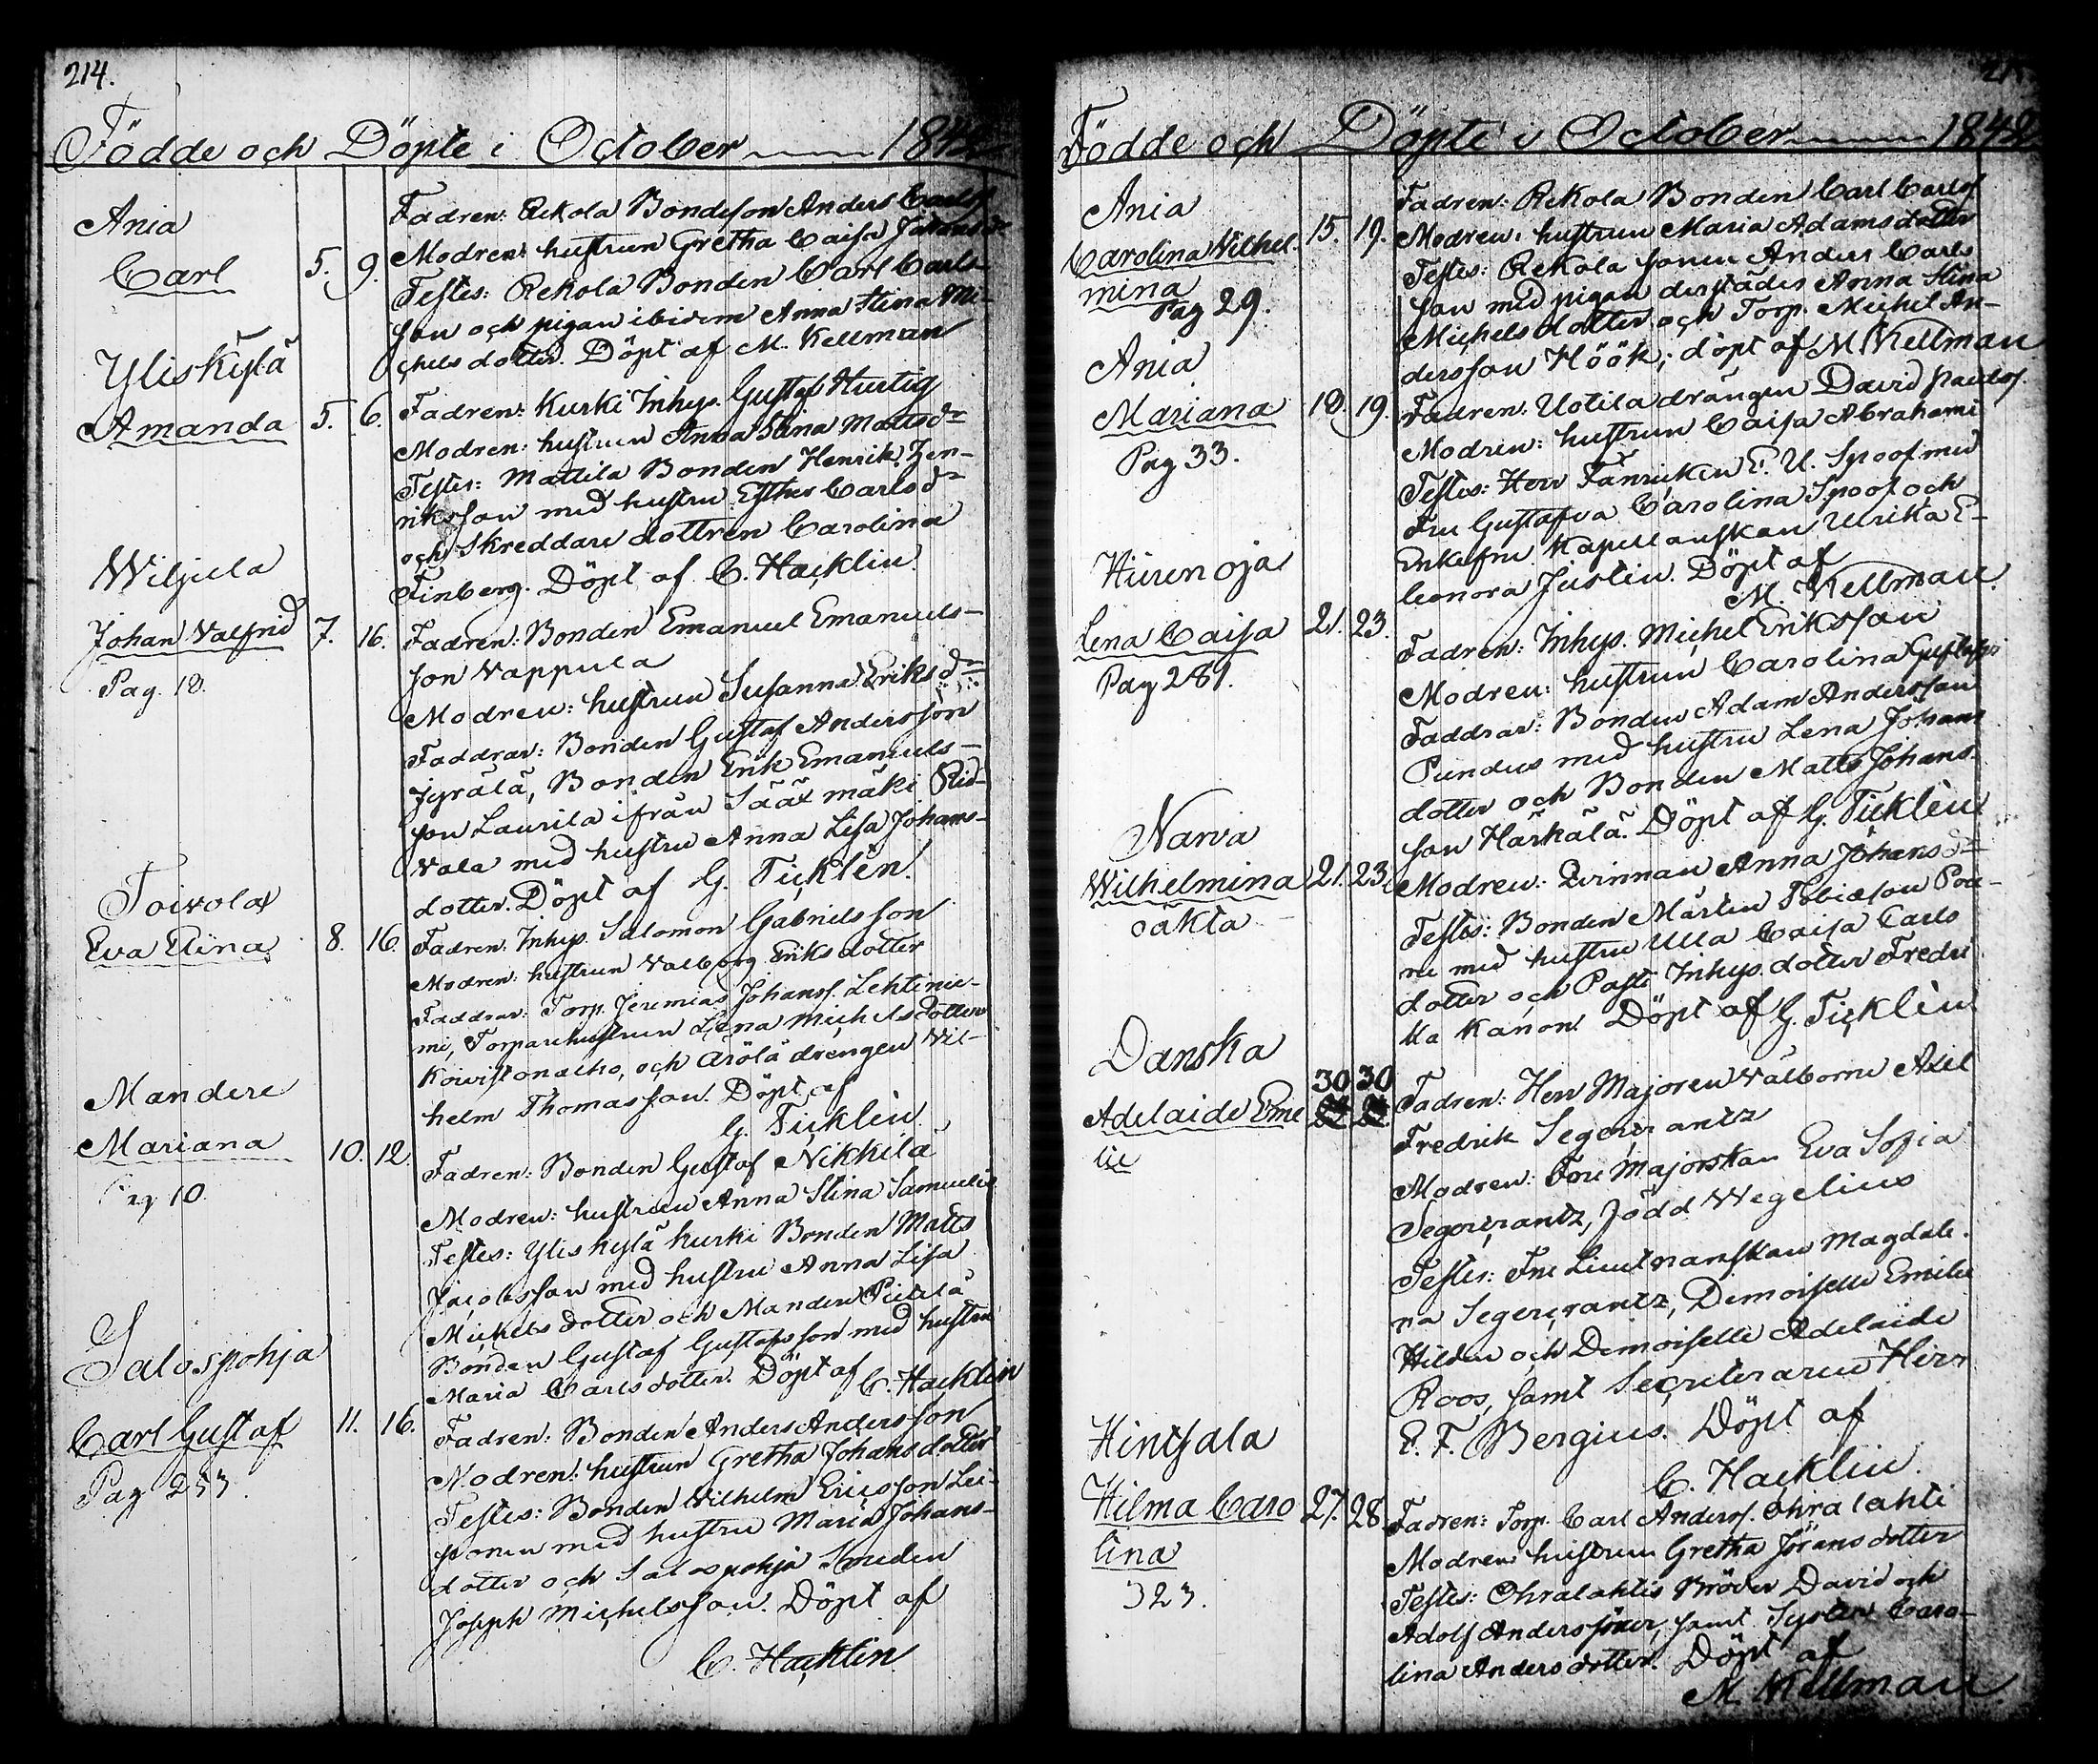 214.
Födde och Döpte i October 1842
Ania
Carl 5. 9.
Fadren: Rekola Bondeson Anders Carls
Modren: hustrun Gretha Caisa
Testes: Rekola Bonden Carl Carls-
son och pigan ibidem Anna Stina Mi-
chelsdotter. Döpt af M. Kellman
Yliskylä
Amanda 5. 6.
Fadren: Kurki Inhys. Gustaf Hurtig
Modren: hustrun Anna Stina Mattsdr
Testes: Mattila Bonden Henrik Hen-
riksson med hustru Esther Carlsdr
och Skreddare dottren Carolina
Finberg. Döpt af C. Hacklin.
Wiljula
Johan Valfrid 7. 16.
Pag. 18.
Fadren: Bonden Emanuel Emanuels-
son Vappula
Modren: hustrun Susanna Eriksdr
Faddrar: Bonden Gustaf Andersson
Jyrälä, Bonden Erik Emanuels-
son Laurila ifrån Sääxmäki Rid-
vala med hustru Anna Lisa Johans-
dotter. Döpt af G. Ticklén.
Toivola
Eva Elina 8. 16.
Fadren: Inhys. Salomon Gabrielsson
Modren: hustrun Valborg Eriksdotter
Faddrar: Torp. Jeremias Johanss. Lehtinie-
mi, Torparehustrun Lena Michelsdotter
Koivistonalho, och Arölä drengen Vil-
helm Thomasson. Döpt af
G. Ticklén.
Mandere
Mariana 10. 12.
Pag 10
Fadren: Bonden Gustaf Nikkilä
Modren: hustrun Anna Stina Samuels
Testes: Yliskylä Kurki Bonden Matts
Jacobsson med hustru Anna Lisa
Michelsdotter och Mandere Pietilä
Bonden Gustaf Gustafsson med hustru
Maria Carlsdotter. Döpt af C. Hacklin
Salospohja
Carl Gustaf 11. 16.
Pag 253.
Fadren: Bonden Anders Andersson
Modren: hustrun Gretha Johansdotter
Testes: Bonden Wilhelm Ericsson Lei-
ponen med hustru Maria Johans-
dotter och Salospohja Smeden
Joseph Michelsson. Döpt af
C. Hacklin
Födde och Döpte i October 1842
Ania
Carolina Vilhel- 15. 19.
mina
Pag 29.
Fadren: Rekola Bonden Carl Carls
Modren: hustrun Maria Adamsdotter
Testes: Rekola sonen Anders Carls
son med pigan derstädes Anna Stina
Michelsdotter och Torp. Michel An-
dersson Höök; döpt af M. Kellman
Ania
Mariana 18. 19.
Pag 33.
Fadren: Uotila drängen David Pauls.
Modren: hustrun Caisa Abrahams
Testes: Herr Fänriken E. U. Spoof med
Fru Gustafva Carolina Spoof och
Enkefru Kapellanskan Ulrika E-
leonora Juslin. Döpt af
M. Kellman
Hiirenoja
Lena Caisa 21. 23.
Pag 281.
Fadren: Inhys. Michel Eriksson
Modren: hustrun Carolina Gustafs
Faddrar: Bonden Adam Andersson
Pundus med hustru Lena Johans
dotter och Bonden Matts Johans
son Härkälä. Döpt af G. Ticklén
Narva
Wilhelmina 21. 23.
oäkta
Modren: Qvinnan Anna Johansdr
Testes: Bonden Mårten Tobiason Pou-
ru med hustru Ulla Caisa Carls
dotter och Pasti Inhys dotter Fredri
ka Kanon. Döpt af G. Ticklén
Danska
30 30
Adelaide Eme
lie
Fadren: Herr Majoren Välborne Axel
Fredrik Segercrantz
Modren: Fru Majorskan Eva Sofia
Segercrantz, född Wegelius
Testes: Fru Lieutnanskan Magdale-
na Segercrantz, Demoiselle Emilie
Hildén och Demoiselle Adelaide
Roos, samt Secreteraren Herr
E. F. Bergius. Döpt af
C. Hacklin.
Hintsala
Hilma Caro 27. 28.
lina
323.
Fadren: Torp. Carl Anderss. Ohralahti
Modren hustrun Gretha Jöransdotter
Testes: Ohralahtis Bröder David och
Adolf Anderssöner, samt Syster Caro-
lina Andersdotter. Döpt af
M. Kellman